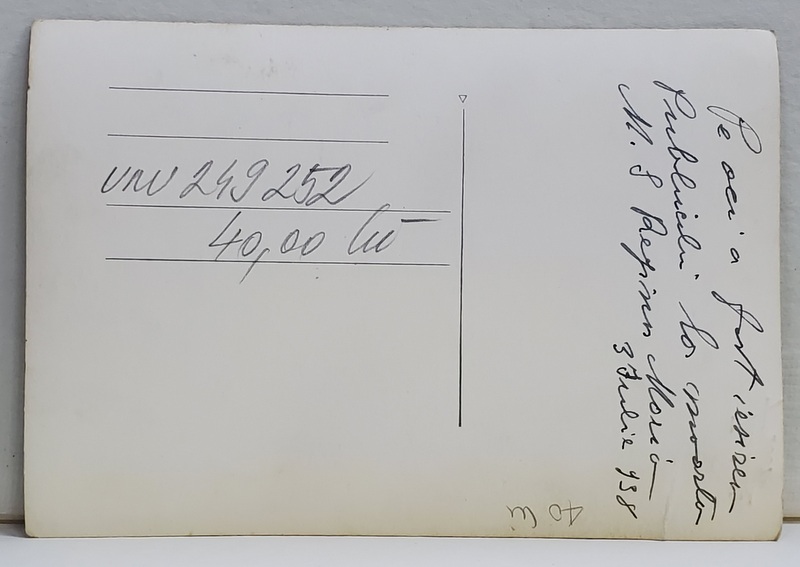 VNV 249252
40,00 lei
Pe aci a fost iesirea
Publicului la moarta
M. S Regina Maria
3 Iulie 938